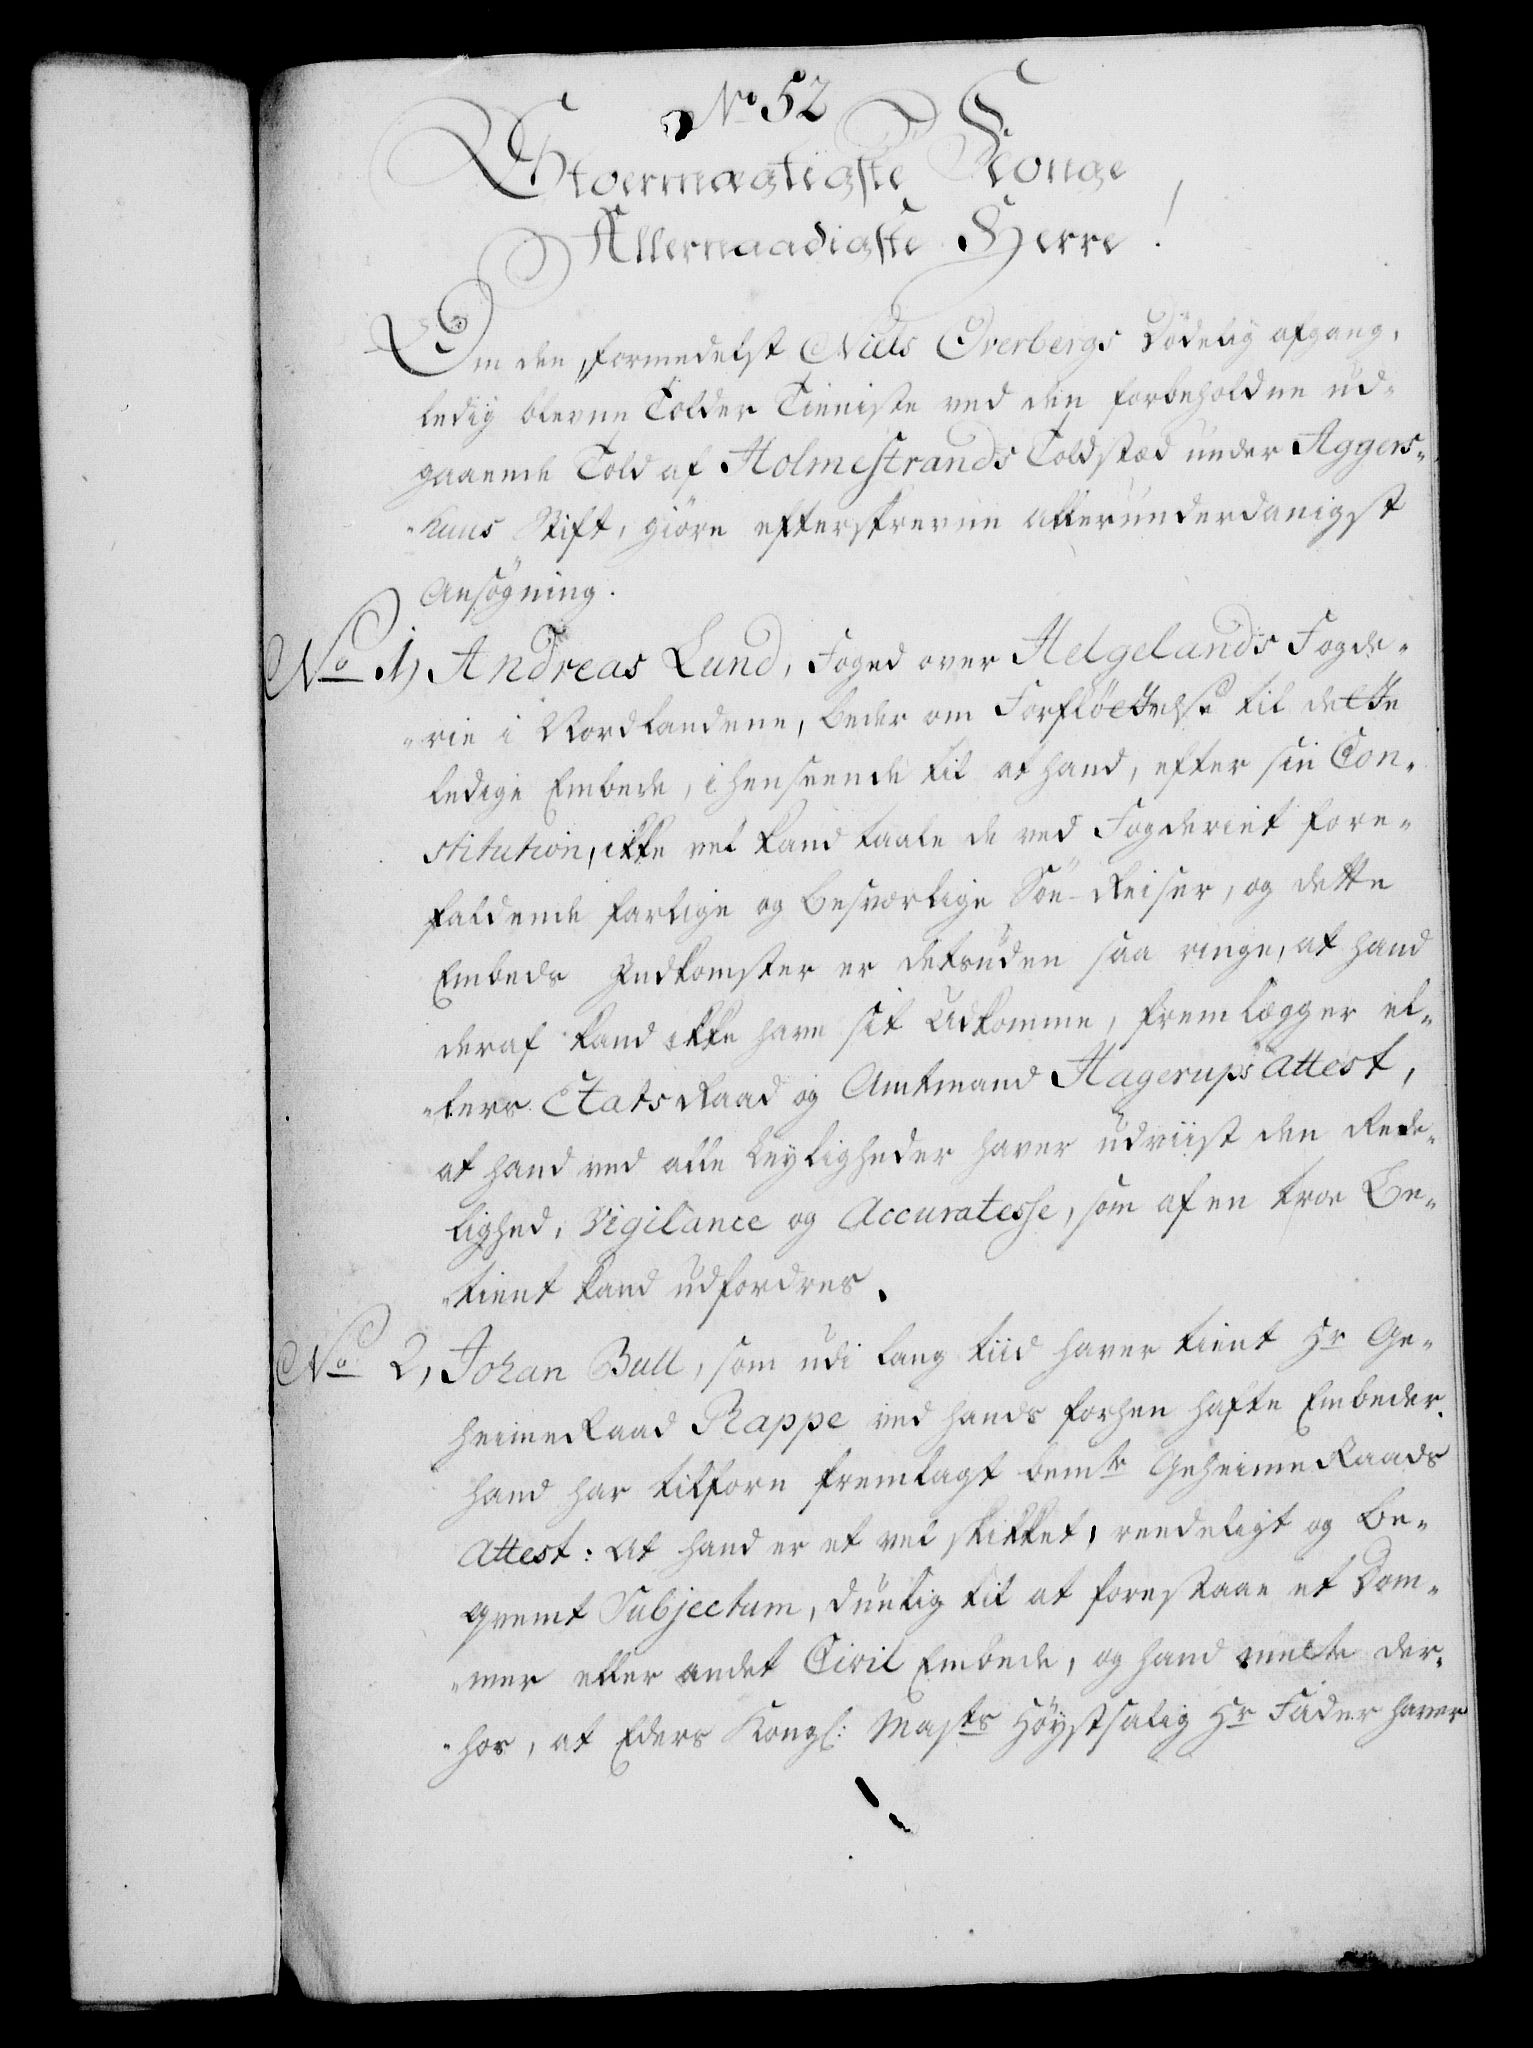 No 52
Stoermægtigste Konge
Allernaadigste Herre!
Om den formedelst Niels Overbergs Dödelig afgang,
ledig blevne Tolder Tieniste ved den forbeholdne ud-
gaaende Told af Holmestrands Toldstæd under Aggers-
-huus Stift, giöre efterskrevne allerunderdanigst
Ansögning.
No 1, Andreas Lund, Foged over Helgelands Fogde-
-rie i Nordlandene, beder om Forfløttelse til dette
ledige Embede, i henseende til at hand, efter sin Con-
stitution, ikke vel kand taale de ved Fogderiet fore-
faldende farlige og besværlige Söe-Reiser, og dette
Embeds Indkomster er desuden saa ringe, at hand
deraf kand ikke have sit Udkomme, fremlægger el-
-lers Etats Raad og Amtmand Hagerups Attest,
at hand ved alle Leyligheder haver udviist den Rede-
lighed, Vigilance og Accuratesse, som af en troe Be-
-tient kand udfordres.
No 2, Johan Bull, som udi lang tiid haver tient Hr Ge-
heimeRaad Rappe ved hands forhen hafte Embeder.
hand har tilforn fremlagt bemte GeheimeRaads
Attest: At hand er et vel skikket, reedeligt og be-
qvemt Subjectum, duelig til at forestaae et Dom-
-mer eller andet Civil Embede, og hand melte der-
-hos, at Eders Kongl: Mayts Höystsalig Hr Fader haver